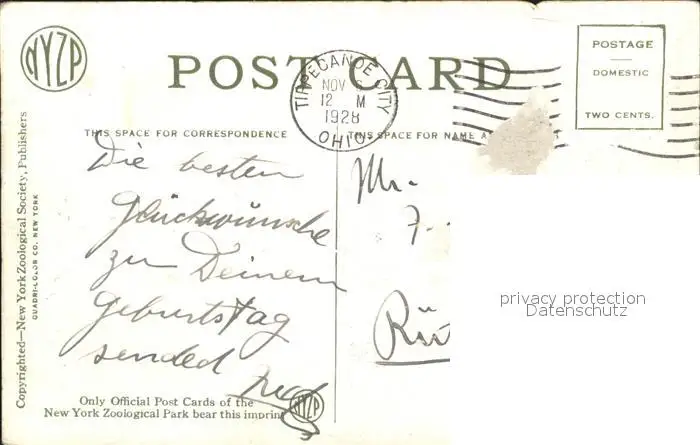 NYZP
POST CARD
TIPPECANOE CITY
NOV 6
12 M
1928
OHIO
POSTAGE
DOMESTIC
TWO CENTS.
THIS SPACE FOR CORRESPONDENCE
THIS SPACE FOR NAME A
Die besten
Glückwünsche
zu Deinem
Geburtstag
sended
Mr.
F.
Rü
privacy protection
Datenschutz
Copyrighted—New York Zoological Society, Publishers
QUADRI-COLOR CO. NEW YORK
Only Official Post Cards of the
New York Zoological Park bear this imprint
NYZP